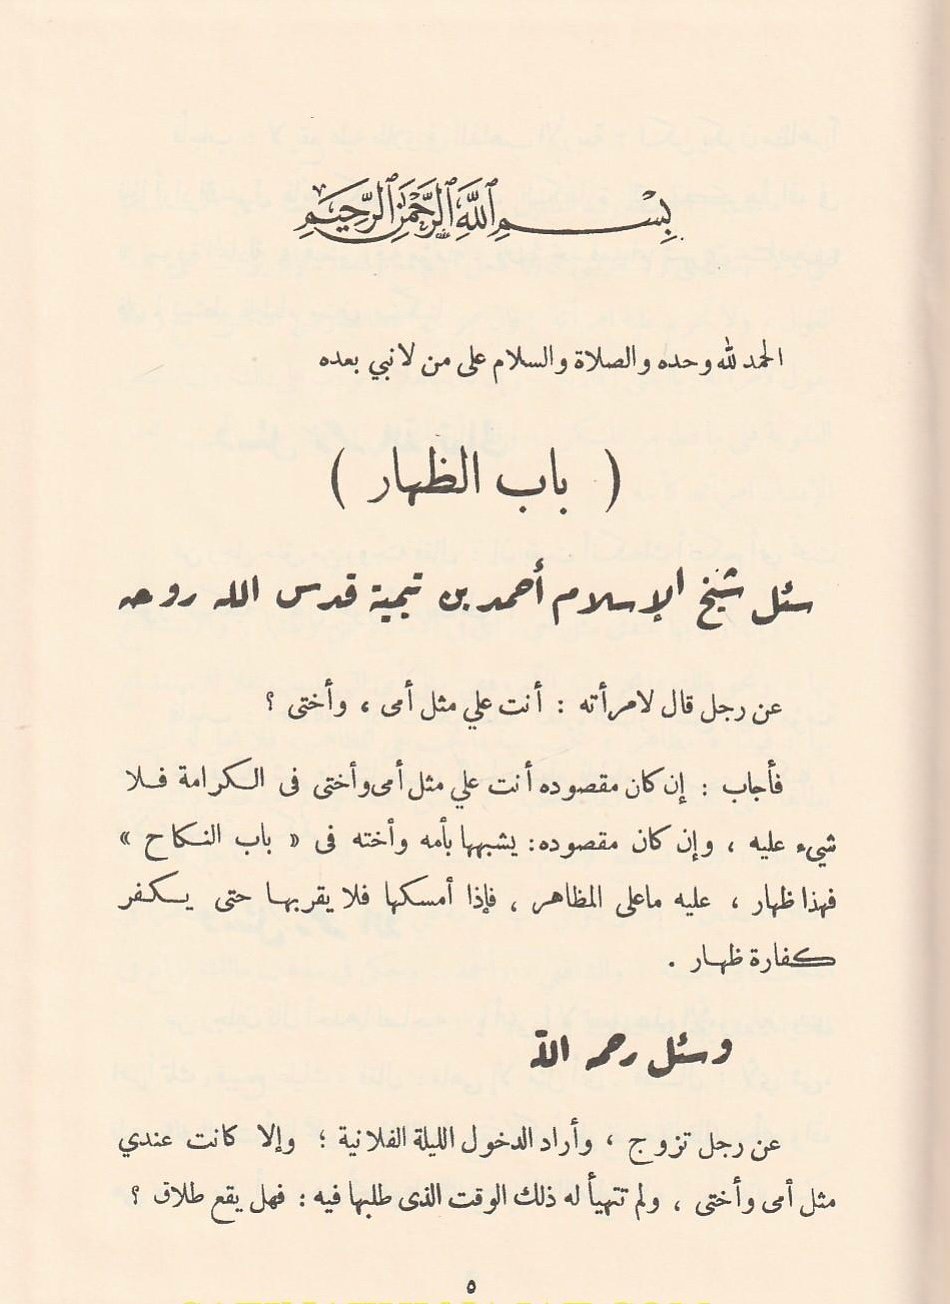 بِسْمِ اللَّهِ الرَّحْمَٰنِ الرَّحِيمِ
الحمد لله وحده والصلاة والسلام على من لا نبي بعده
( باب الظهار )
سئل شيخ الإسلام أحمد بن تيمية قدس الله روحه
عن رجل قال لامرأته : أنت علي مثل أمى ، وأختى ؟
فأجاب : إن كان مقصوده أنت علي مثل أمى وأختى فى الكرامة فلا
شيء عليه ، وإن كان مقصوده : يشبهها بأمه وأخته فى « باب النكاح »
فهذا ظهار ، عليه ماعلى المظاهر ، فإذا أمسكها فلا يقربها حتى يكفر
كفارة ظهار .
وسئل رحمه الله
عن رجل تزوج ، وأراد الدخول الليلة الفلانية ؛ وإلا كانت عندي
مثل أمى وأختى ، ولم تتهيأ له ذلك الوقت الذى طلبها فيه : فهل يقع طلاق ؟
٥